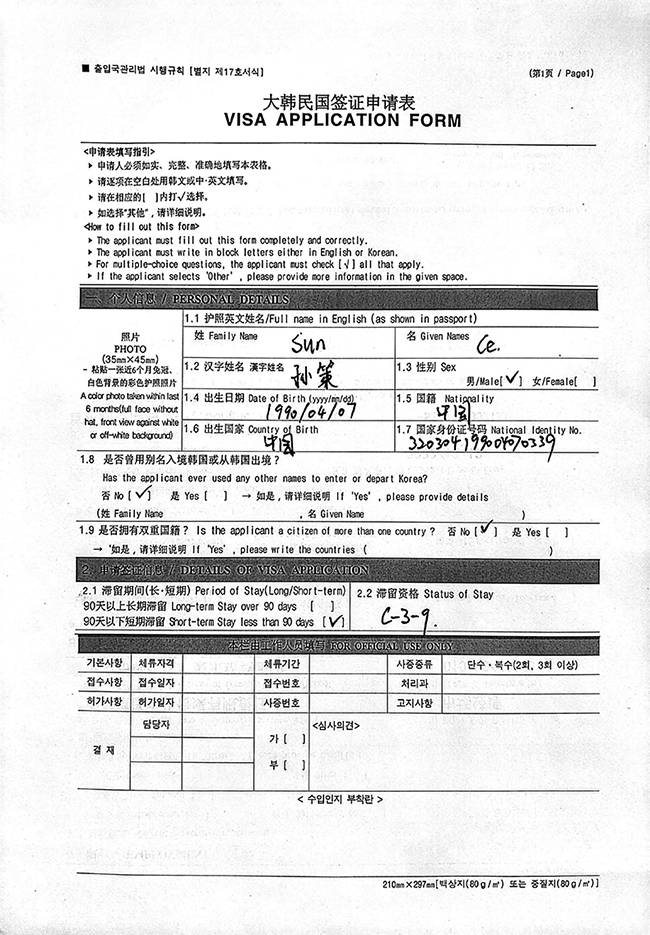 ■ 출입국관리법 시행규칙 [별지 제17호서식]
(第1页 / Page1)
大韩民国签证申请表
VISA APPLICATION FORM
<申请表填写指引>
▶ 申请人必须如实、完整、准确地填写本表格。
▶ 请逐项在空白处用韩文或中·英文填写。
▶ 请在相应的[ ]内打√选择。
▶ 如选择“其他”, 请详细说明。
<How to fill out this form>
▶ The applicant must fill out this form completely and correctly.
▶ The applicant must write in block letters either in English or Korean.
▶ For multiple-choice questions, the applicant must check [√] all that apply.
▶ If the applicant selects 'Other', please provide more information in the given space.
一、个人信息 / PERSONAL DETAILS
照片
PHOTO
(35mm×45mm)
- 粘贴一张近6个月免冠、
白色背景的彩色护照照片
A color photo taken within last
6 months(full face without
hat, front view against white
or off-white background)
1.1 护照英文姓名/Full name in English (as shown in passport)
姓 Family Name Sun
名 Given Names Ce.
1.2 汉字姓名 漢字姓名 孙策
1.3 性别 Sex
男/Male[√] 女/Female[ ]
1.4 出生日期 Date of Birth (yyyy/mm/dd)
1990/04/07
1.5 国籍 Nationality
中国
1.6 出生国家 Country of Birth
中国
1.7 国家身份证号码 National Identity No.
320304199004070339
1.8 是否曾用别名入境韩国或从韩国出境?
Has the applicant ever used any other names to enter or depart Korea?
否 No [√] 是 Yes [ ] → 如是, 请详细说明 If 'Yes', please provide details
(姓 Family Name , 名 Given Name )
1.9 是否拥有双重国籍? Is the applicant a citizen of more than one country? 否 No[√] 是 Yes [ ]
→ '如是, 请详细说明 If 'Yes', please write the countries ( )
2. 申请签证信息 / DETAILS OF VISA APPLICATION
2.1 滞留期间(长·短期) Period of Stay(Long/Short-term)
90天以上长期滞留 Long-term Stay over 90 days [ ]
90天以下短期滞留 Short-term Stay less than 90 days [√]
2.2 滞留资格 Status of Stay
C-3-9.
本栏由工作人员填写 FOR OFFICIAL USE ONLY
기본사항 체류자격 체류기간 사증종류 단수·복수(2회, 3회 이상)
접수사항 접수일자 접수번호 처리과
허가사항 허가일자 사증번호 고지사항
결 재
담당자
가 [ ]
부 [ ]
<심사의견>
< 수입인지 부착란 >
210mm×297mm[백상지(80g/㎡) 또는 중질지(80g/㎡)]